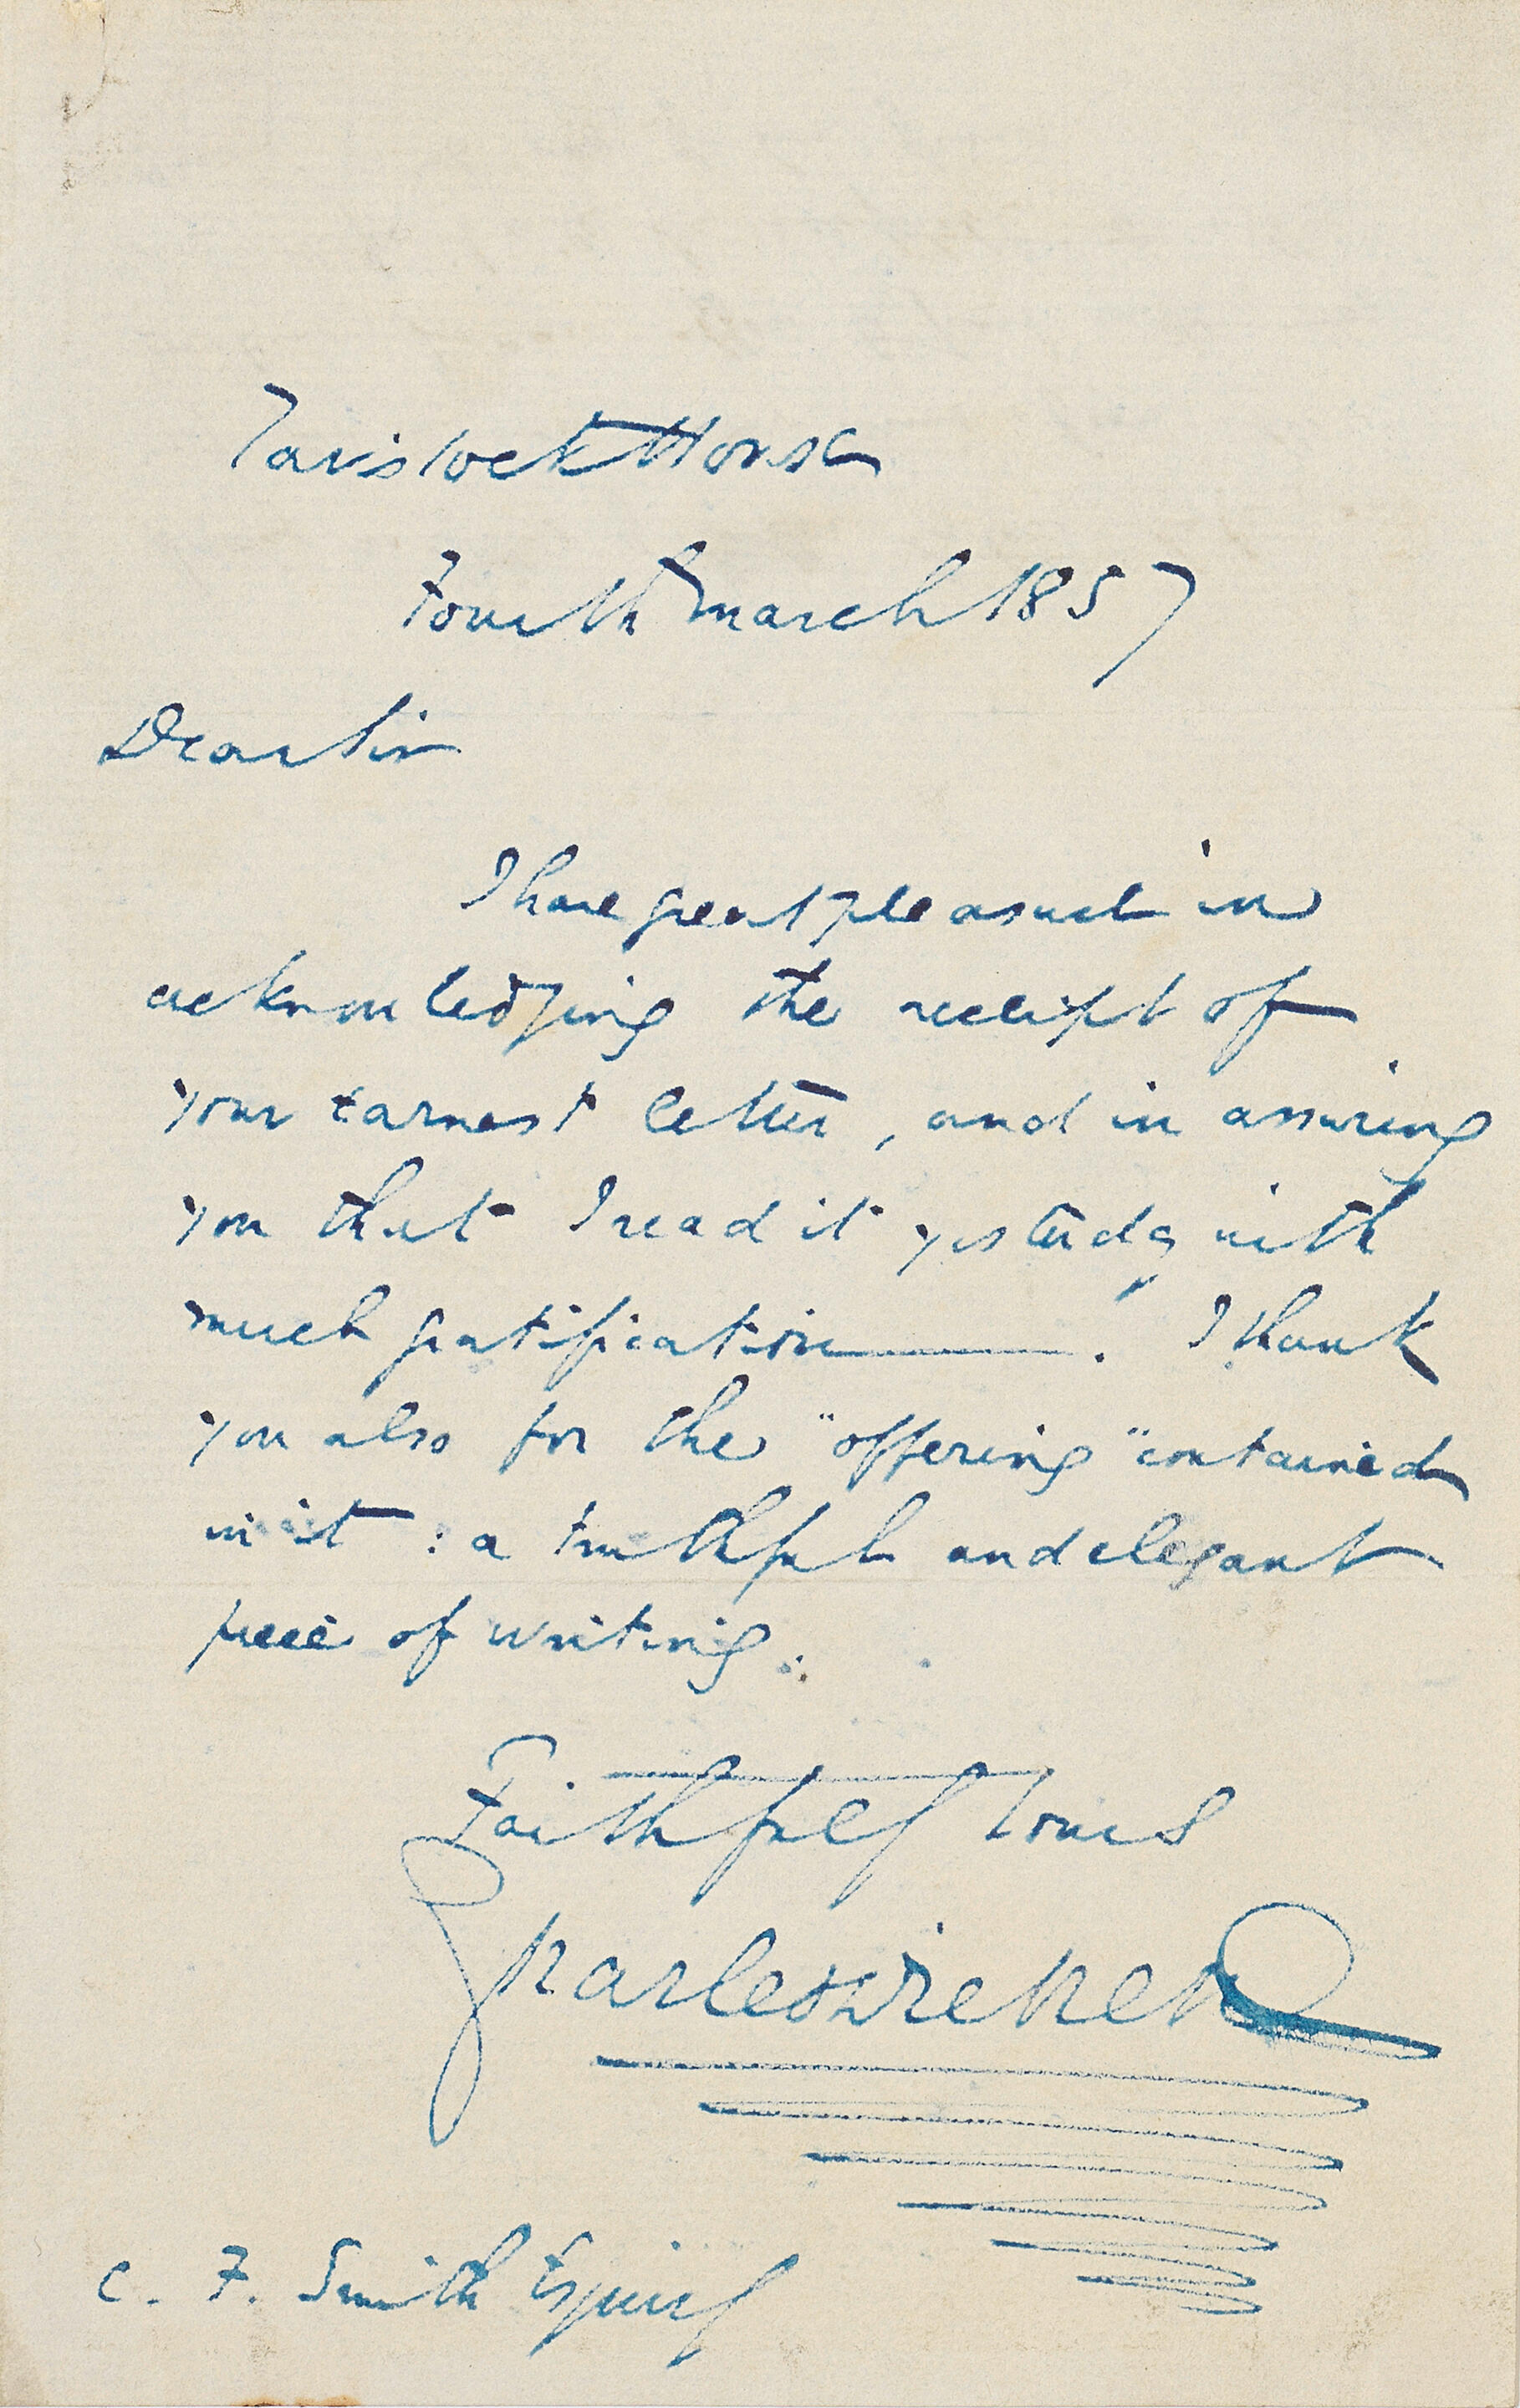 Tavistock House
Fourth March 1857
Dear Sir
I have great pleasure in
acknowledging the receipt of
your earnest letter, and in assuring
you that I read it yesterdy with
much gratification ———. I thank
you also for the "offering" contained
in it : a truthful and elegant
piece of writing.
Faithfully Yours
Charles Dickens
C. F. Smith Esquire